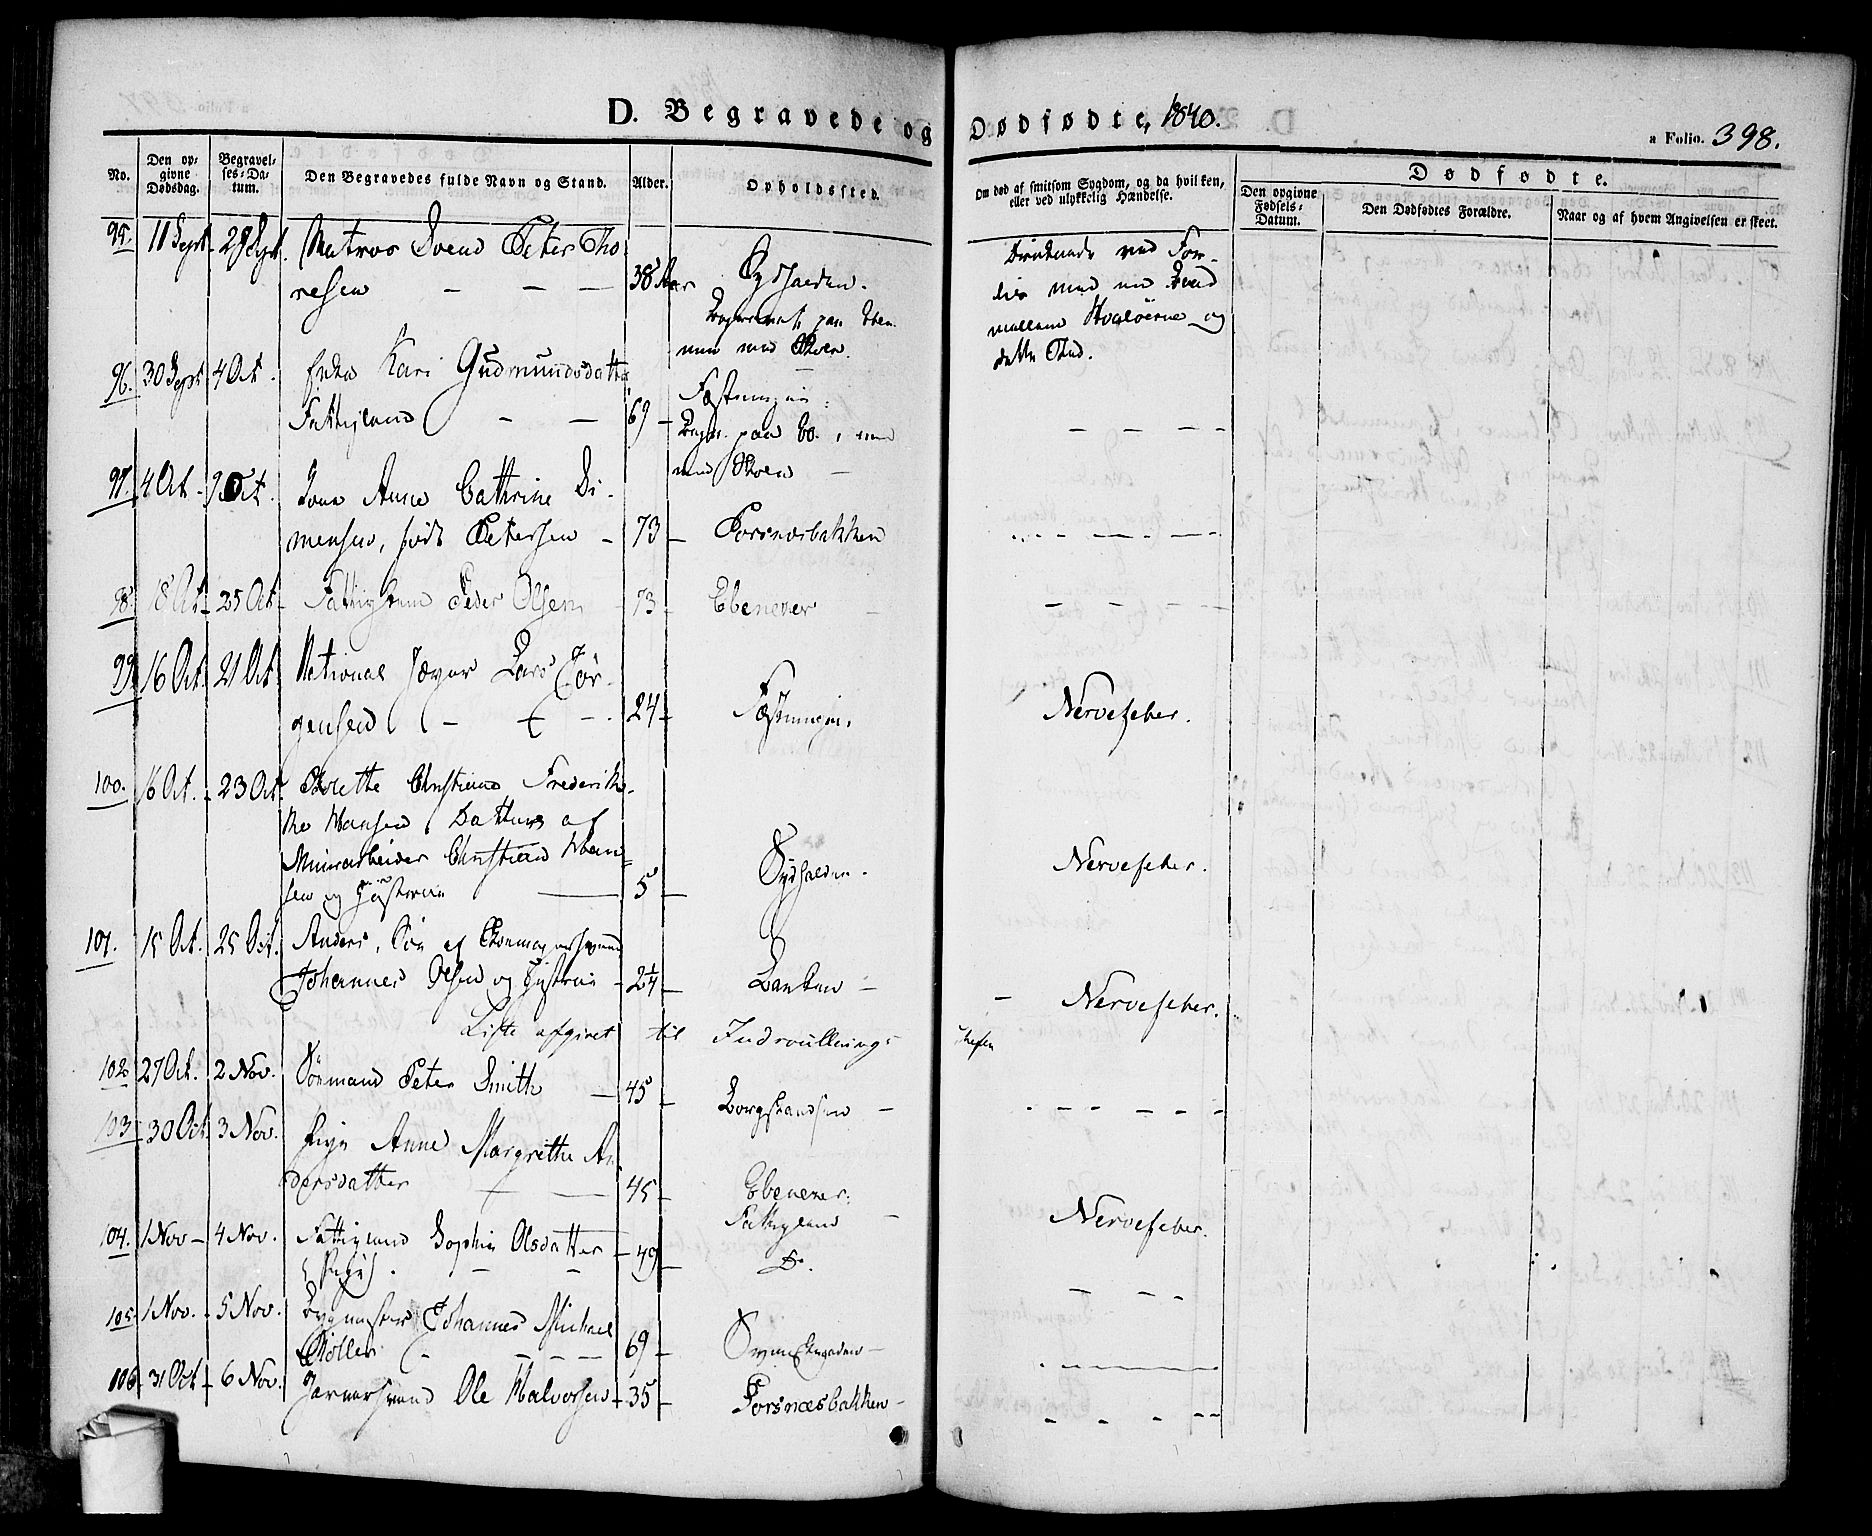 D. Begravede og Dødfødte, 1840.
a Folio. 398.
No.
Den op-
givne
Dødsdag.
Begravel-
ses-Da-
tum.
Den Begravedes fulde Navn og Stand.
Alder.
Opholdssted.
Om død af smitsom Sygdom, og da hvilken,
eller ved ulykkelig Hændelse.
Dødfødte.
Den opgivne
Fødsels-
Datum.
Den Dødfødtes Forældre.
Naar og af hvem Angivelsen er skeet.
95. 11 Sept. 29 Sept. Matros Svend Peter Tho-
resen — — — 38 Aar Sydhalden.
Druknede ved For-
lis med en Baad
mellem Hvaløerne og
dette Sted.
96. 30 Sept 4 Oct. Enke Kari Gudmundsdatter
Fattiglem — — 69 — Fæstningen.
97. 4 Oct. 9 Oct. Anne Cathrine Si-
mensen, født Petersen — 73 — Torsnæsbakken
98. 18 Oct. 25 Oct. Fattiglem Peder Olsen 73 Ebenezer
99. 16 Oct. 21 Oct. National Jæger Lars Jør-
gensen — — 24 — Fæstningen. Nervefeber.
100. 16 Oct. 23 Oct. Christiane Frederik-
ke Hansen, Datter af
Christian Han-
sen og Hustrue — 5 — Sydhalden. Nervefeber.
101. 15 Oct. 25 Oct. Anders, Søn af
Johannes Olsen og Hustrue — 2 1/4 — Banken — Nervefeber.
Liste afgivet til Indrullerings-
chefen
102. 27 Oct. 2 Nov. Sømand Peter Smith — 45 —
103. 30 Oct. 3 Nov. Pige Anne Margrethe An-
dersdatter — — 45 — Ebenezer. Nervefeber.
104. 1 Nov — 4 Nov. Fattiglem Sophie Olsdatter — 49 — Fattiglem
(Pige). — — Do.
105. 1 Nov. 5 Nov. Bygmester Johannes Michael
Møller — — — 69 —
106. 31 Oct. 6 Nov. Ole Halvorsen — 35 — Torsnæsbakken —